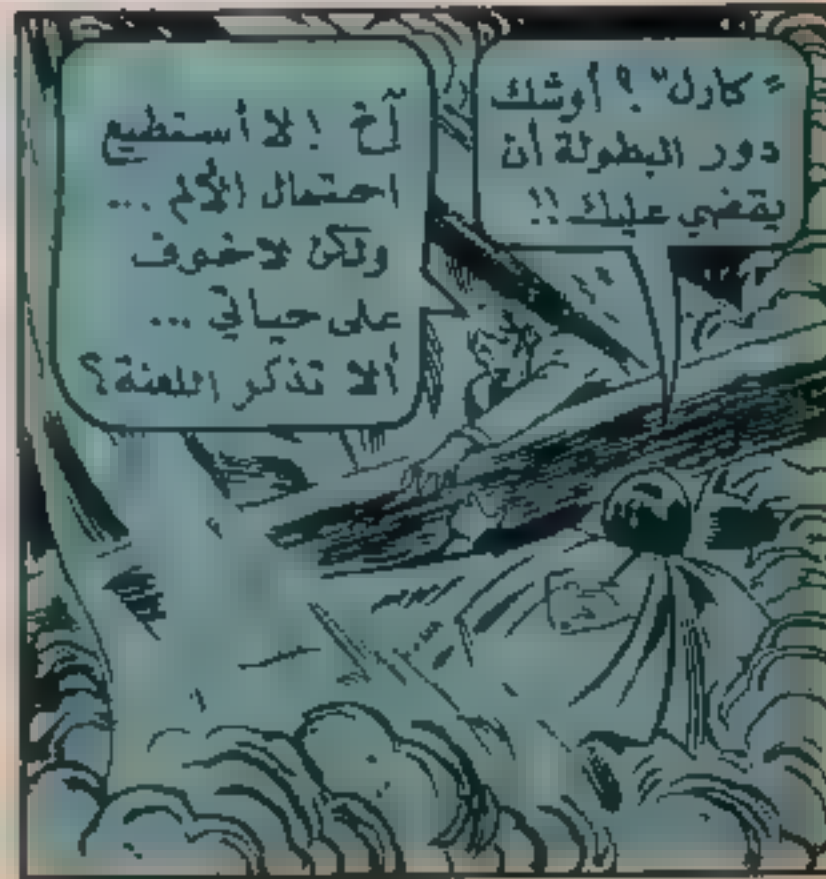 "كارل"؟ أوشك
دور البطولة أن
يقضي عليك!!
آخ! لا أستطيع
احتمال الألم...
ولكن لا خوف
على حياتي...
ألا تذكر اللعنة؟